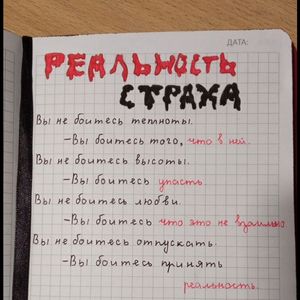 ДАТА:
РЕАЛЬНОСТЬ
СТРАХА
Вы не боитесь темноты.
-Вы боитесь того, что в ней.
Вы не боитесь высоты.
-Вы боитесь упасть.
Вы не боитесь любви.
-Вы боитесь что это не взаимно
Вы не боитесь отпускать.
-Вы боитесь принять
реальность.